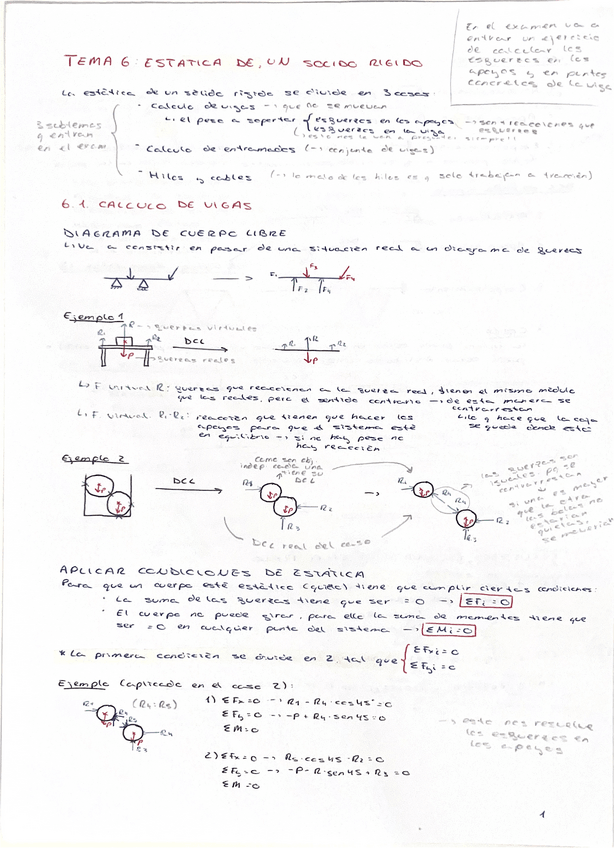 En el examen va a
entrar un ejercicio
de calcular los
esfuerzos en los
apoyos y en puntos
concretos de la viga
TEMA 6: ESTATICA DE UN SOLIDO RIGIDO
La estática de un sólido rígido se divide en 3 cosas:
· Calculo de vigas → que no se muevan
↳ el peso a soportar
esfuerzos en los apoyos → son reacciones que
esfuerzos en la viga
3 problemas
q entran
en el exam.
· Calculo de entramados (→ conjunto de vigas)
· Hilos y cables (→ lo malo de los hilos es q solo trabajan a tracción)
6.1. CALCULO DE VIGAS
DIAGRAMA DE CUERPO LIBRE
↳ Va a consistir en pasar de una situación real a un diagrama de fuerzas
F1 F2 F3 F4
Ejemplo 1
R → fuerzas virtuales
R1 R2
P → fuerzas reales
DCL
R1 R R2
P
↳ F virtual R: fuerzas que reaccionan a la fuerza real, tienen el mismo módulo
que las reales, pero el sentido contrario → de esta manera se
contrarrestan
y hace que la caja
se quede donde está
↳ F virtual R1-R2: reacción que tienen que hacer los
apoyos para que el sistema esté
en equilibrio → si no hay peso no
hay reacción
Ejemplo 2
DCL
Como son obj
indep cada uno
tiene su
DCL
R1
R2
R3
DCL real del caso
R1 R4
R2
las fuerzas son
iguales pq se
contrarrestan
si una es mayor
que la otra
las bolas no
estarían
quietas,
se movería
APLICAR CONDICIONES DE ESTÁTICA
Para que un cuerpo esté estática (quieto) tiene que cumplir ciertas condiciones:
· La suma de las fuerzas tiene que ser = 0 → ΣFi = 0
· El cuerpo no puede girar, para ello la suma de momentos tiene que
ser = 0 en cualquier punto del sistema → ΣMi = 0
* La primera condición se divide en 2, tal que
ΣFxi = 0
ΣFyi = 0
Ejemplo (aplicado en el caso 2):
(R4=R5)
1) ΣFx=0 → R1 - R4·cos45°=0
ΣFy=0 → -P+R4·sen45=0
ΣM=0
→ esto nos resuelve
los esfuerzos en
los apoyos
2) ΣFx=0 → R5·cos45-R2=0
ΣFy=0 → -P-R·sen45+R3=0
ΣM=0
1